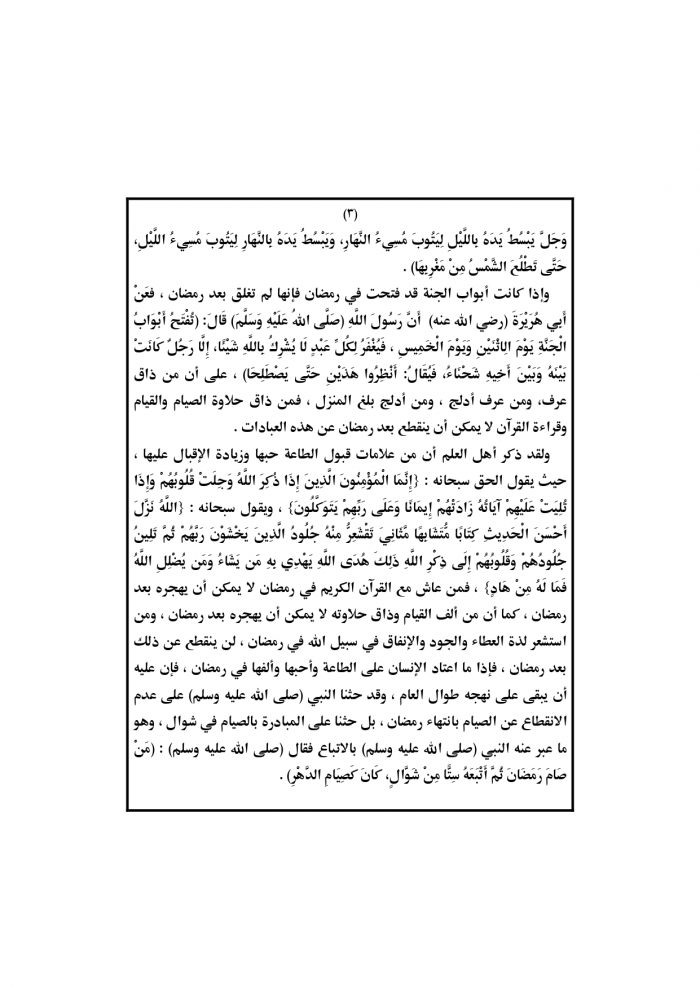 (٣)
وَجَلَّ يَبْسُطُ يَدَهُ بِاللَّيْلِ لِيَتُوبَ مُسِيءُ النَّهَارِ، وَيَبْسُطُ يَدَهُ بِالنَّهَارِ لِيَتُوبَ مُسِيءُ اللَّيْلِ،
حَتَّى تَطْلُعَ الشَّمْسُ مِنْ مَغْرِبِهَا) .
وإذا كانت أبواب الجنة قد فتحت في رمضان فإنها لم تغلق بعد رمضان ، فعَنْ
أَبِي هُرَيْرَةَ (رضي الله عنه) أَنَّ رَسُولَ اللَّهِ (صَلَّى اللهُ عَلَيْهِ وَسَلَّمَ) قَالَ: (تُفْتَحُ أَبْوَابُ
الْجَنَّةِ يَوْمَ الِاثْنَيْنِ وَيَوْمَ الْخَمِيسِ ، فَيُغْفَرُ لِكُلِّ عَبْدٍ لَا يُشْرِكُ بِاللَّهِ شَيْئًا، إِلَّا رَجُلٌ كَانَتْ
بَيْنَهُ وَبَيْنَ أَخِيهِ شَحْنَاءُ، فَيُقَالُ: أَنْظِرُوا هَذَيْنِ حَتَّى يَصْطَلِحَا) ، على أن من ذاق
عرف، ومن عرف أدلج ، ومن أدلج بلغ المنزل ، فمن ذاق حلاوة الصيام والقيام
وقراءة القرآن لا يمكن أن ينقطع بعد رمضان عن هذه العبادات .
ولقد ذكر أهل العلم أن من علامات قبول الطاعة حبها وزيادة الإقبال عليها ،
حيث يقول الحق سبحانه : {إِنَّمَا الْمُؤْمِنُونَ الَّذِينَ إِذَا ذُكِرَ اللَّهُ وَجِلَتْ قُلُوبُهُمْ وَإِذَا
تُلِيَتْ عَلَيْهِمْ آيَاتُهُ زَادَتْهُمْ إِيمَانًا وَعَلَى رَبِّهِمْ يَتَوَكَّلُونَ} ، ويقول سبحانه : {اللَّهُ نَزَّلَ
أَحْسَنَ الْحَدِيثِ كِتَابًا مُّتَشَابِهًا مَّثَانِيَ تَقْشَعِرُّ مِنْهُ جُلُودُ الَّذِينَ يَخْشَوْنَ رَبَّهُمْ ثُمَّ تَلِينُ
جُلُودُهُمْ وَقُلُوبُهُمْ إِلَى ذِكْرِ اللَّهِ ذَلِكَ هُدَى اللَّهِ يَهْدِي بِهِ مَن يَشَاءُ وَمَن يُضْلِلِ اللَّهُ
فَمَا لَهُ مِنْ هَادٍ} ، فمن عاش مع القرآن الكريم في رمضان لا يمكن أن يهجره بعد
رمضان ، كما أن من ألف القيام وذاق حلاوته لا يمكن أن يهجره بعد رمضان ، ومن
استشعر لذة العطاء والجود والإنفاق في سبيل الله في رمضان ، لن ينقطع عن ذلك
بعد رمضان ، فإذا ما اعتاد الإنسان على الطاعة وأحبها وألفها في رمضان ، فإن عليه
أن يبقى على نهجه طوال العام ، وقد حثنا النبي (صلى الله عليه وسلم) على عدم
الانقطاع عن الصيام بانتهاء رمضان ، بل حثنا على المبادرة بالصيام في شوال ، وهو
ما عبر عنه النبي (صلى الله عليه وسلم) بالاتباع فقال (صلى الله عليه وسلم) : (مَنْ
صَامَ رَمَضَانَ ثُمَّ أَتْبَعَهُ سِتًّا مِنْ شَوَّالٍ، كَانَ كَصِيَامِ الدَّهْرِ) .